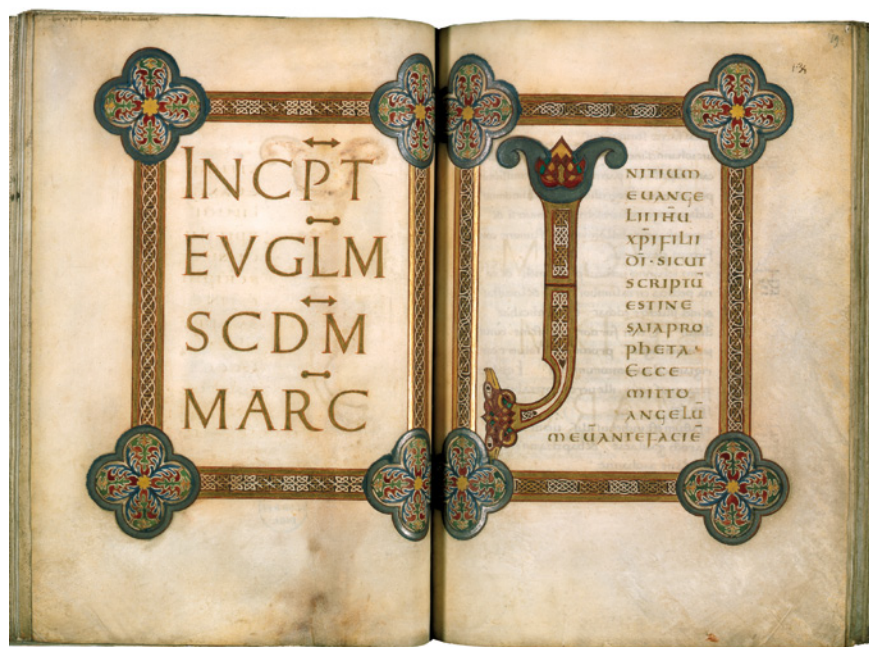 INCPT
EVGLM
SCDM
MARC
INITIUM
EUANGE
LIIIHU
XPIFILII
DI·SICUT
SCRIPTŪ
ESTINE
SAIAPRO
PHETA·
ECCE
MITTO
ANGELŪ
MEŪANTEFACIĒ